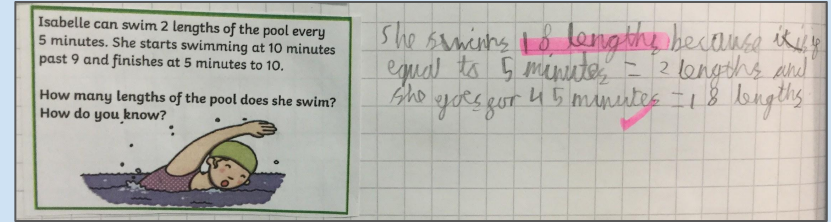 Isabelle can swim 2 lengths of the pool every
5 minutes. She starts swimming at 10 minutes
past 9 and finishes at 5 minutes to 10.
How many lengths of the pool does she swim?
How do you know?
She swims 18 lengths because it is
equal to 5 minutes = 2 lengths and
she goes for 45 minutes = 18 lengths